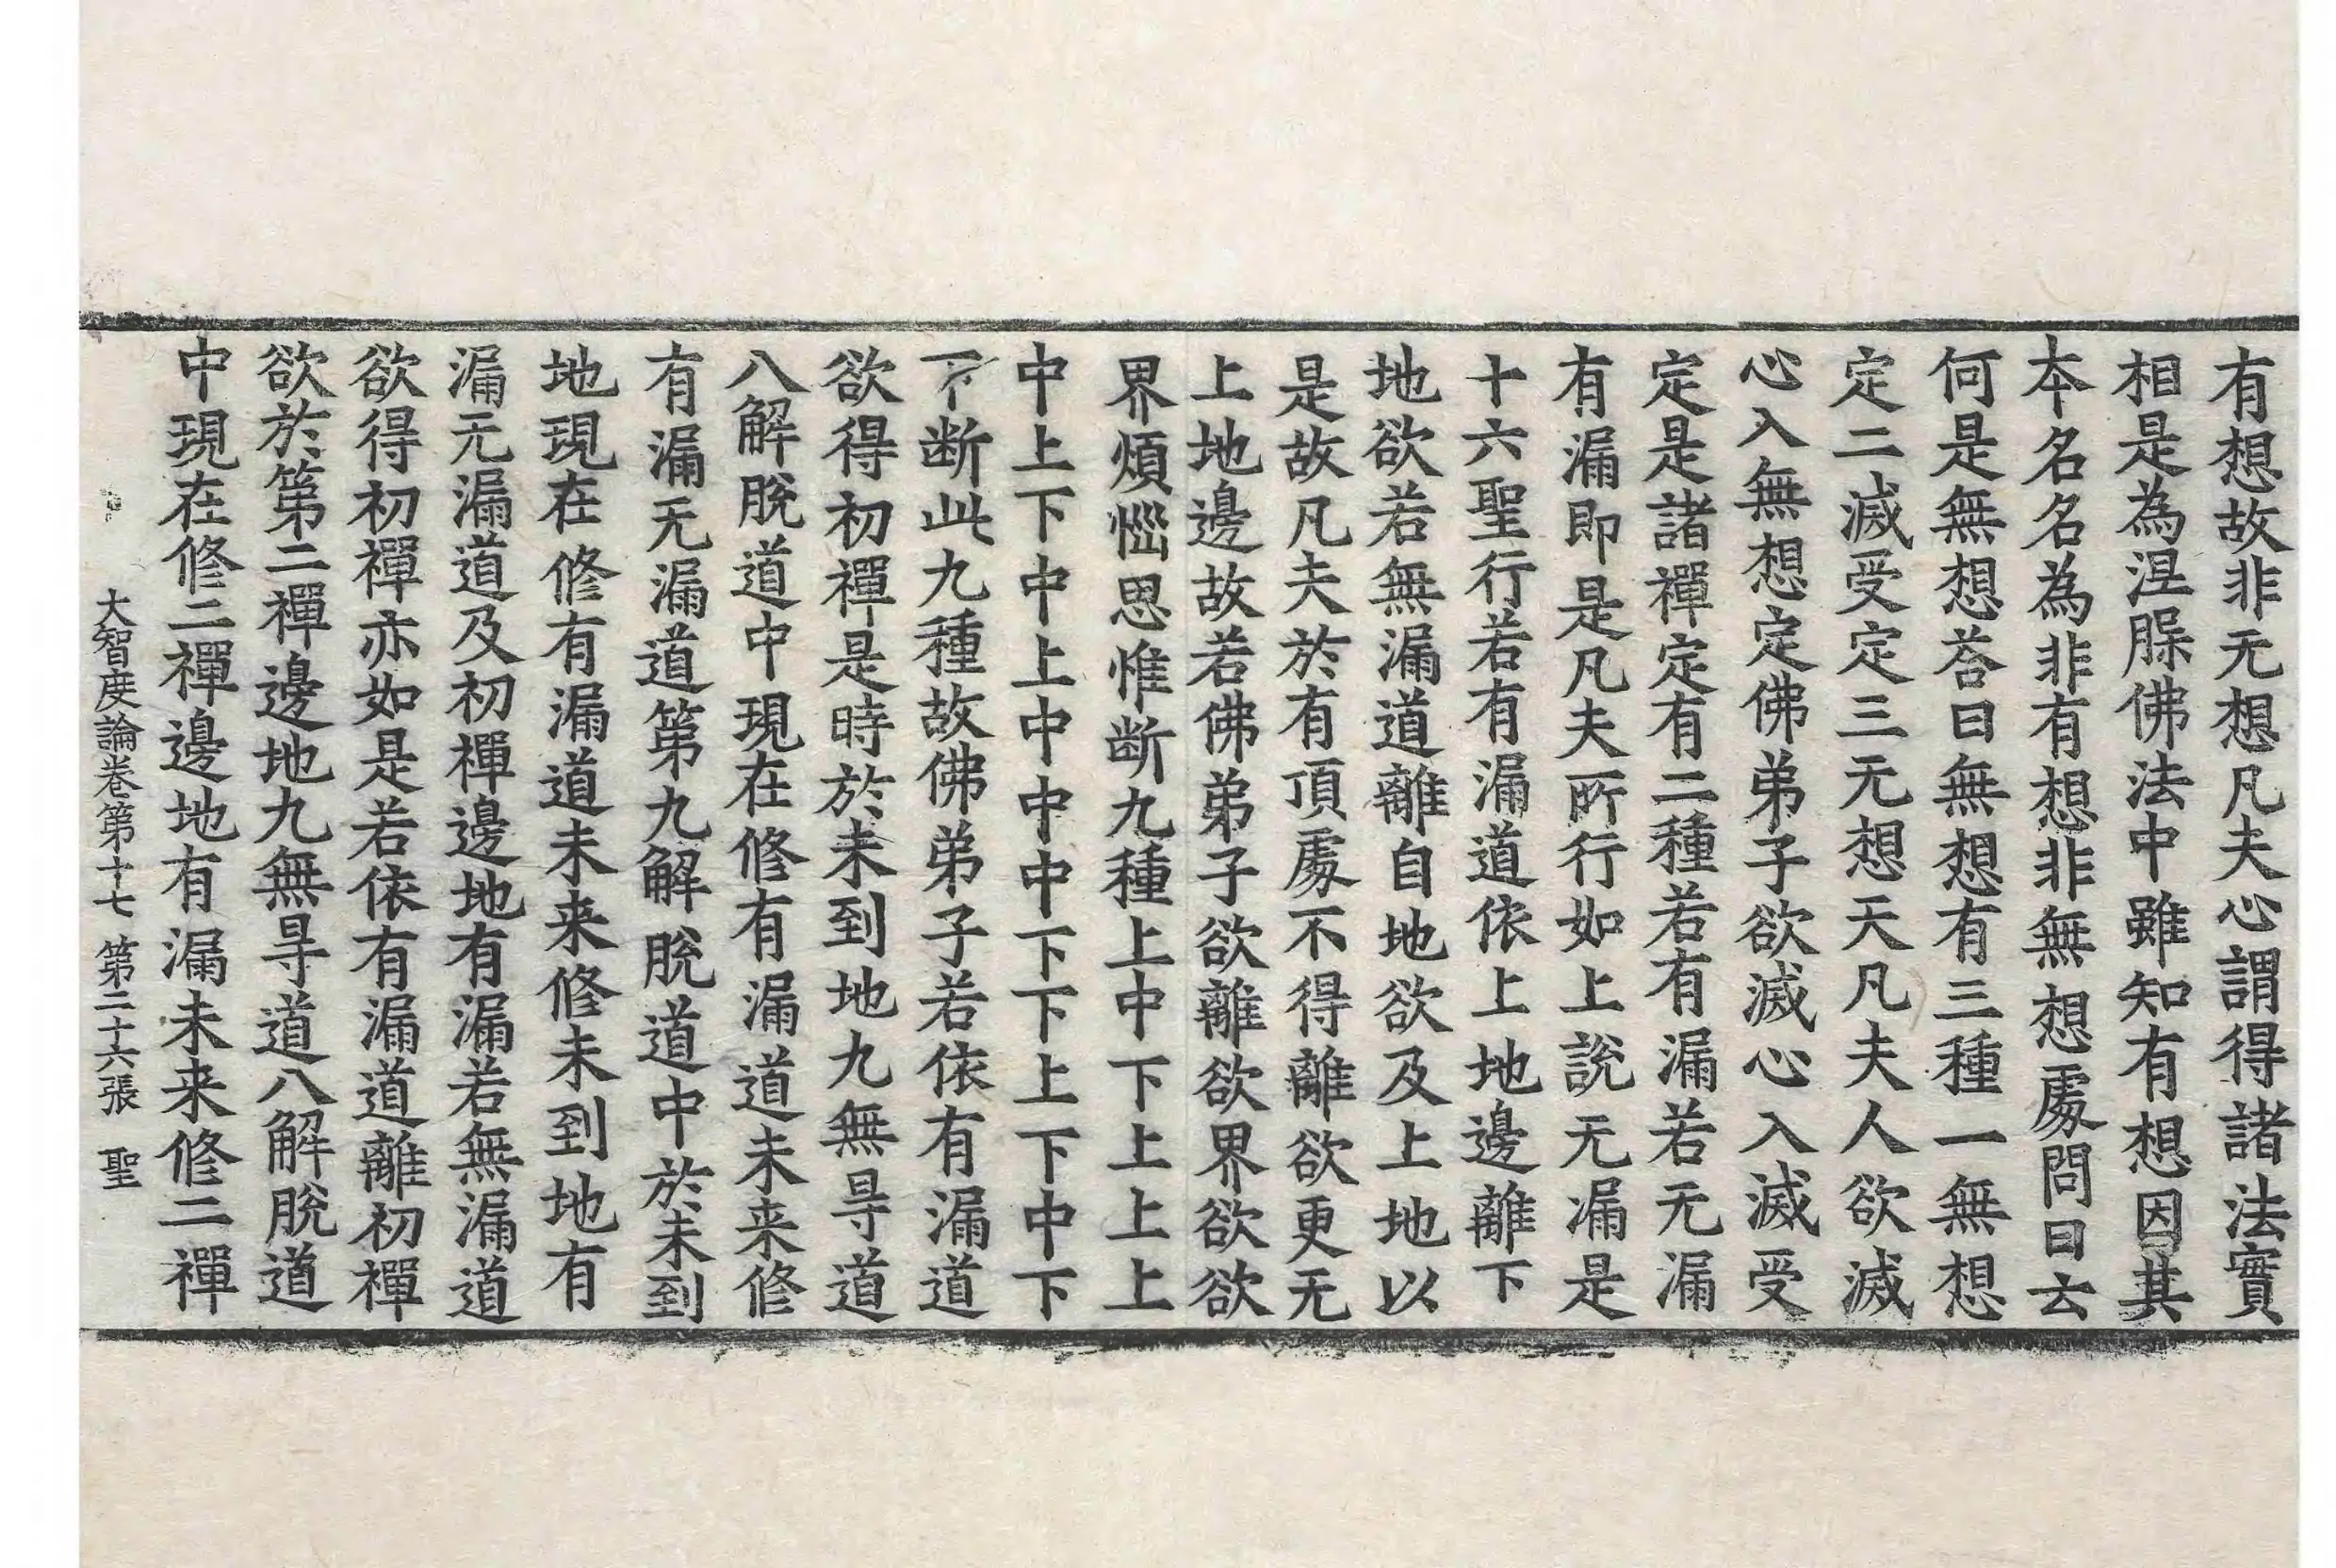 有想故非无想凡夫心謂得諸法實
相是為涅脲佛法中雖知有想因其
本名名為非有想非無想處問曰云
何是無想荅曰無想有三種一無想
定二滅受定三无想天凡夫人欲滅
心入無想定佛弟子欲滅心入滅受
定是諸禪定有二種若有漏若无漏
有漏即是凡夫所行如上說无漏是
十六聖行若有漏道依上地邊離下
地欲若無漏道離自地欲及上地以
是故凡夫於有頂處不得離欲更无
上地邊故若佛弟子欲離欲界欲欲
界煩惱思惟断九種上中下上上上
中上下中上中中中下下上下中下
下断此九種故佛弟子若依有漏道
欲得初禪是時於未到地九無㝵道
八解脫道中現在修有漏道未来修
有漏无漏道第九解脫道中於未到
地現在修有漏道未来修未到地有
漏无漏道及初禪邊地有漏若無漏道
欲得初禪亦如是若依有漏道離初禪
欲於第二禪邊地九無㝵道八解脫道
中現在修二禪邊地有漏未来修二禪
大智度論卷第十七 第二十六張 聖